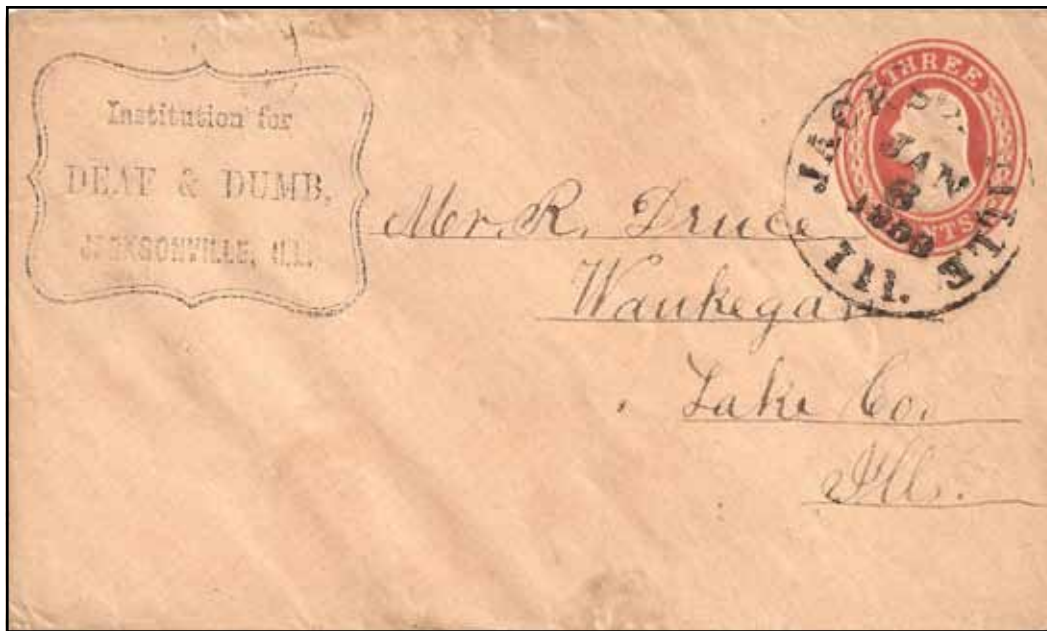 Institution for
DEAF & DUMB,
JACKSONVILLE, ILL.
THREE
CENTS
JACKSONVILLE
JAN
1859
Ill.
Mr. R. Druce
Waukegan
Lake Co.
Ill.